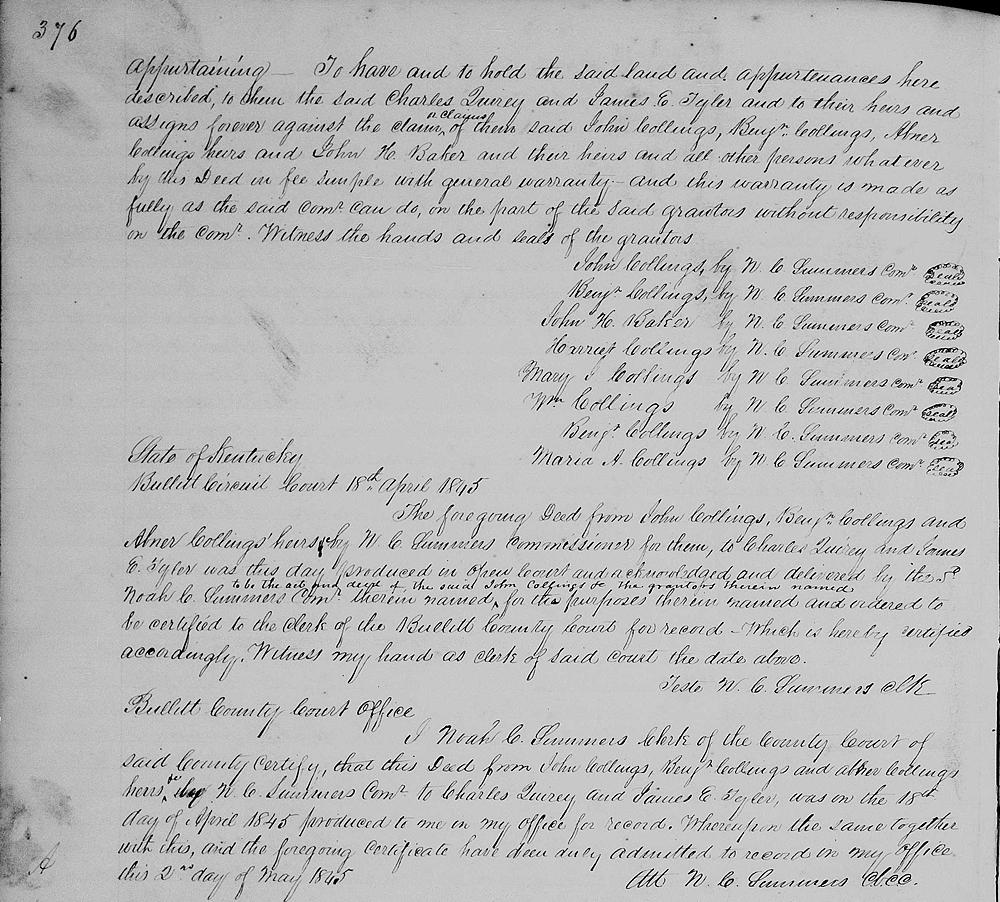 376
appurtaining — To have and to hold the said land and appurtenances here
described, to them the said Charles Quirey and James E. Tyler and to their heirs and
assigns forever against the claim or claims of them said John Collings, Benjn. Collings, Abner
Collings heirs and John H. Baker and their heirs and all other persons whatever
by this Deed in fee simple with general warranty – and this warranty is made as
fully as the said Comr. can do, on the part of the said grantors without responsibility
on the Comr. Witness the hands and seals of the grantors
John Collings, by N. C. Summers Comr. Seal
Benjn. Collings, by N. C. Summers Comr. Seal
John H. Baker by N. C. Summers Comr. Seal
Harriet Collings by N. C. Summers Comr. Seal
Mary J Collings by N C. Summers Comr. Seal
Wm Collings by N. C. Summers Comr. Seal
Benjn. Collings by N. C. Summers Comr. Seal
Maria A. Collings by N. C. Summers Comr. Seal
State of Kentucky
Bullitt Circuit Court 18th April 1845
The foregoing Deed from John Collings, Benjn. Collings and
Abner Collings' heirs &c by N. C. Summers Commissioner for them, to Charles Quirey and James
E. Tyler was this day produced in open Court and acknowledged and delivered by the sd.
to be the act and deed of the said John Collings &c the grantors therein named
Noah C. Summers Comr. therein named, for the purposes therein named and ordered to
be certified to the Clerk of the Bullitt County Court for record – Which is hereby certified
accordingly. Witness my hand as clerk of said court the date above.
Teste N. C. Summers Clk
Bullitt County Court Office
I Noah C. Summers Clerk of the County Court of
said County certify, that this Deed from John Collings, Benjn. Collings and abner Collings
heirs &c by N. C. Summers Comr. to Charles Quirey and James E. Tyler, was on the 18th
day of April 1845 produced to me in my office for record. Whereupon the same together
with this, and the foregoing Certificate have been duly admitted to record in my office
this 2nd day of May 1845
Att N. C. Summers C.B.C.C.